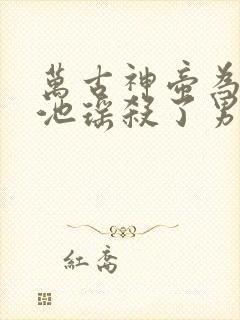 萬古神帝為
池瑤殺了男
紅喬